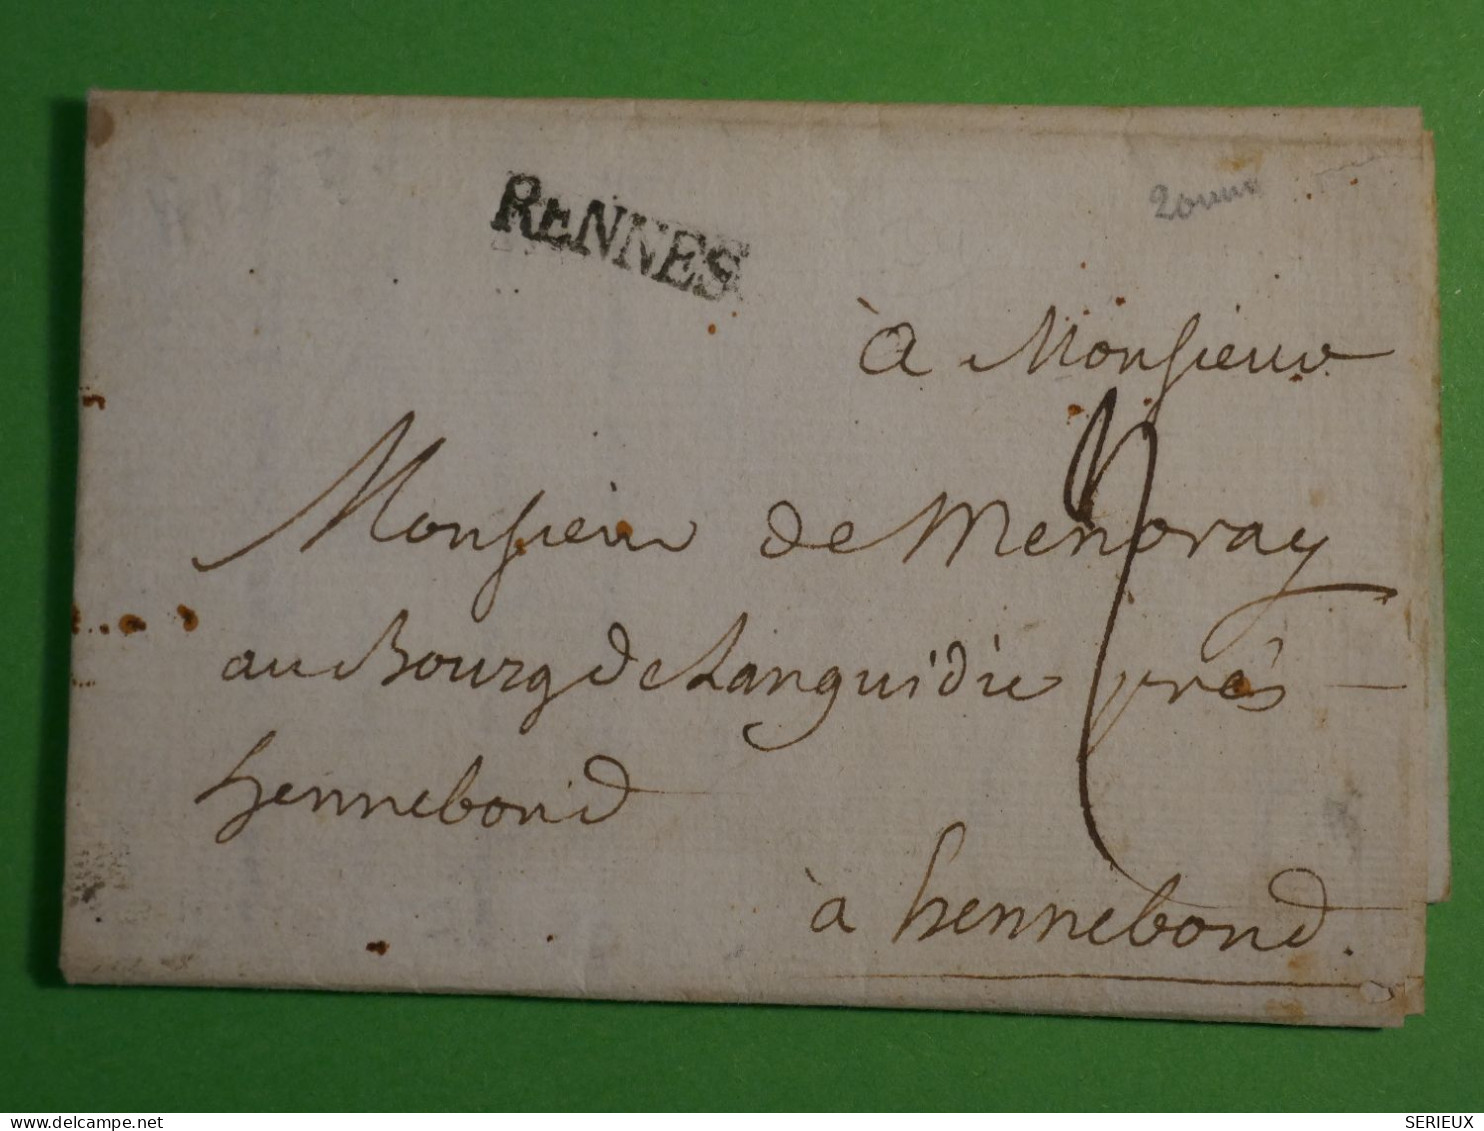 RENNES
20mm
à Monsieur
Monsieur de Menoray
au Bourg de Languidic près
hennebond
à hennebond.
SERIEUX